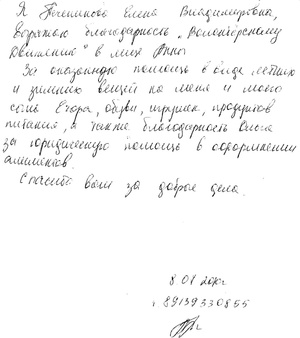 Я Елена Владимировна,
выражаю благодарность "Волонтёрскому
Движению" в лице Анны
За оказанную помощь в виде летних
и зимних вещей на меня и моего
сына Егора, обуви, игрушек, продуктов
питания, а также благодарность
за юридическую помощь в оформлении
алиментов.
Спасибо вам за добрые дела.
8.07
т 89139330855